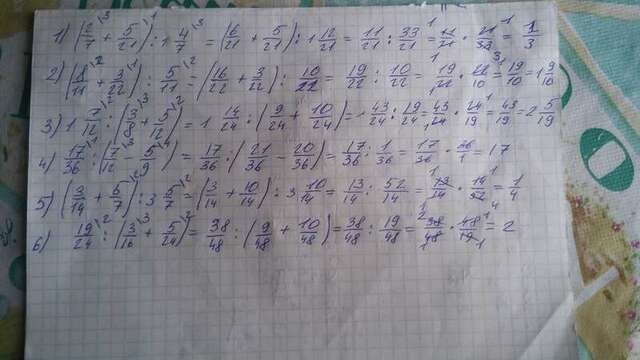 1) (2/7\3 + 5/21\1) : 1 4/7\3 = (6/21 + 5/21) : 1 12/21 = 11/21 : 33/21 = 11/21 · 21/33 = 1/3
2) (8/11\2 + 3/22\1) : 5/11\2 = (16/22 + 3/22) : 10/22 = 19/22 : 10/22 = 19/22 · 22/10 = 19/10 = 1 9/10
3) 1 7/12\2 : (3/8\3 + 5/12\2) = 1 14/24 : (9/24 + 10/24) = 1 43/24 : 19/24 = 43/24 · 24/19 = 43/19 = 2 5/19
4) 17/36\1 : (7/12\3 - 5/9\2) = 17/36 : (21/36 - 20/36) = 17/36 : 1/36 = 17/36 · 36/1 = 17
5) (3/14 + 6/7\2) : 3 5/7\2 = (3/14 + 10/14) : 3 10/14 = 13/14 : 52/14 = 13/14 · 14/52 = 1/4
6) 19/24\2 : (3/16\3 + 5/24\2) = 38/48 : (9/48 + 10/48) = 38/48 : 19/48 = 38/48 · 48/19 = 2